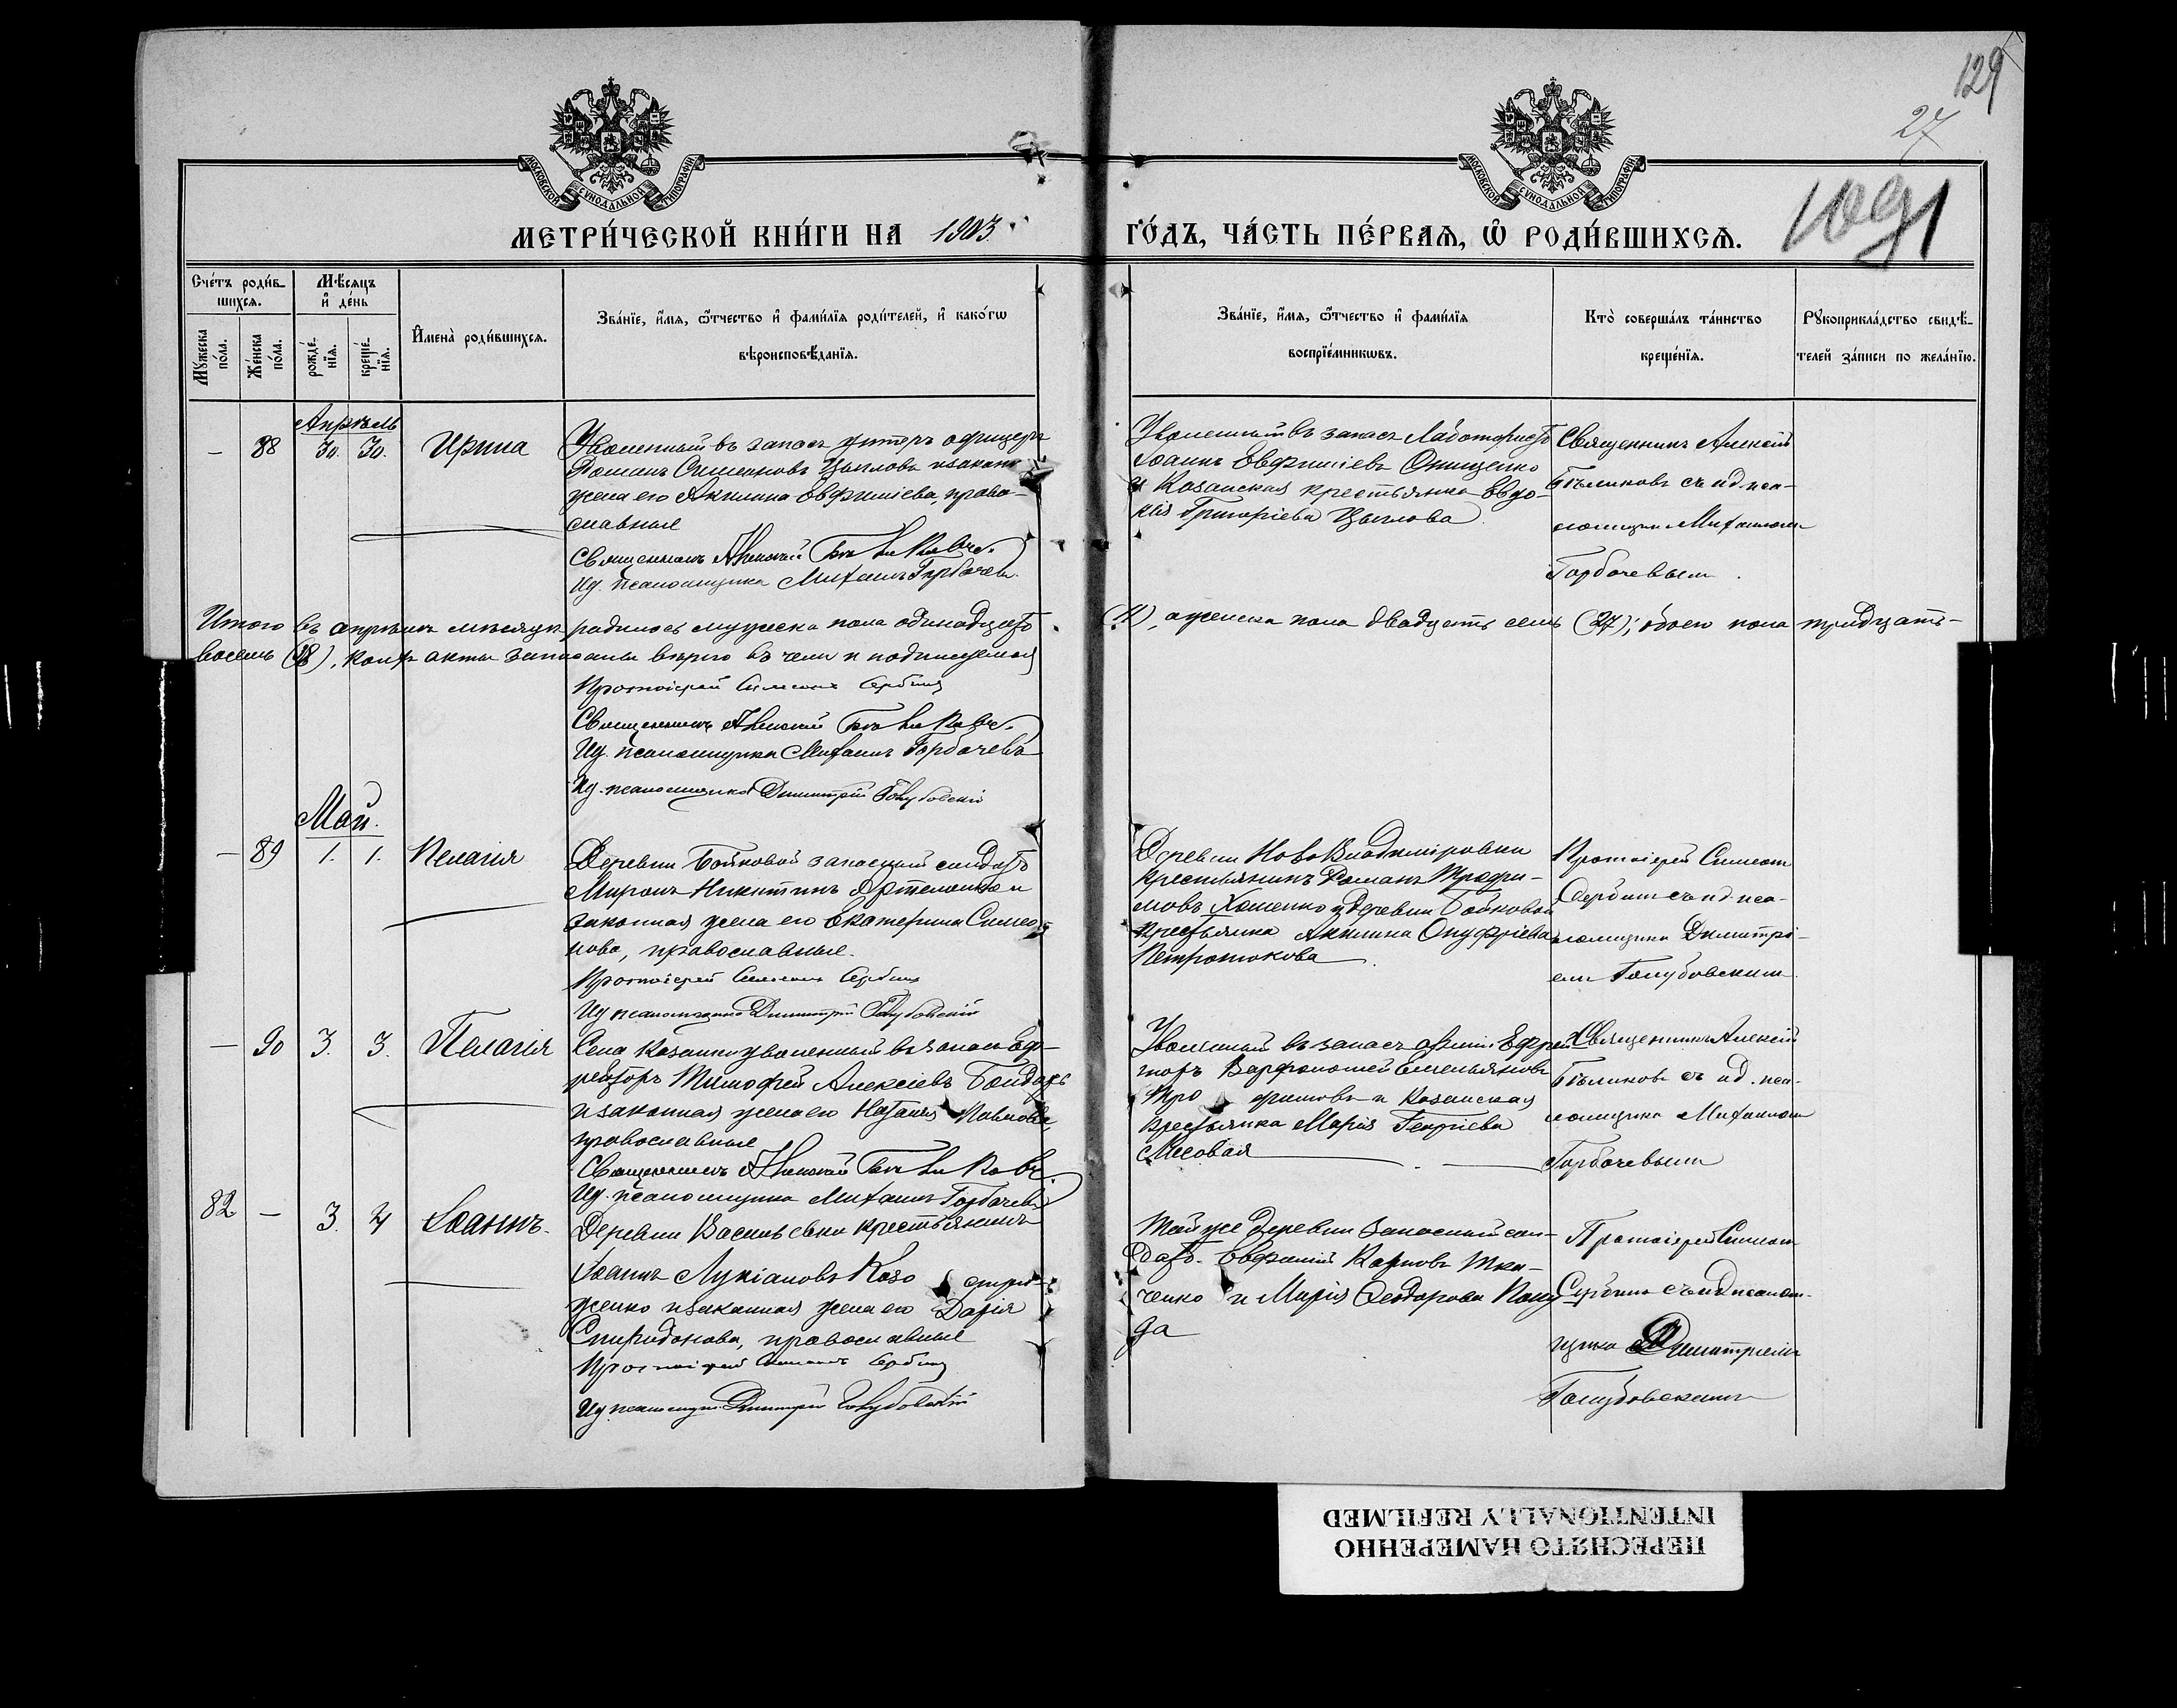 129
27
1091
МОСКОВСКОЙ СУНОДАЛЬНОЙ ТИПОГРАФІИ
МОСКОВСКОЙ СУНОДАЛЬНОЙ ТИПОГРАФІИ
МЕТРИ́ЧЕСКОЙ КНИ́ГИ НА 1903
ГО́ДЪ, ЧА́СТЬ ПЕ́РВАѦ, Ѡ РОДИ́ВШИХСѦ.
Сче́тъ роди́в-
шихсѧ.
Мѣ́сѧцъ
и҆ де́нь
Мꙋ́жеска
по́ла.
Же́нска
по́ла.
рожде́-
нїѧ.
креще́-
нїѧ.
И҆мена̀ роди́вшихсѧ.
Зва́нїе, и҆́мѧ, ѻ҆́тчество и҆ фами́лїѧ роди́телей, и҆ како́гѡ
вѣроисповѣ́данїѧ.
Зва́нїе, и҆́мѧ, ѻ҆́тчество и҆ фами́лїѧ
воспрїе́мникѡвъ.
Кто̀ соверша́лъ та́инство
креще́нїѧ.
Рꙋкоприкла́дство свидѣ́-
телей за́писи по жела́нїю.
Апрѣль
— 88 30. 30. Ирина
Уволенный въ запасъ унтеръ офицеръ
Романъ Симеоновъ Цыловъ и законн
жена его Акилина Евфиміева, право-
славные
Священникъ Алексій Бѣликовъ
Ид. псаломщика Михаилъ Горбачевъ.
Уволенный въ запасъ
Іоаннъ Евфиміевъ Онищенко
и Казанская крестьянка Евдо-
кія Григоріева Цылова
Священникъ Алексій
Бѣликовъ съ ид пса-
ломщика Михаиломъ
Горбачевымъ.
Итого въ апрѣлѣ мѣсяцѣ родилось мужеска пола одинадцать (11), а женска пола двадцать семь (27); обоего пола тридцать-
восемь (38), коихъ акты записаны вѣрно въ чемъ и подписуемся
Протоіерей Симеонъ Сербинъ
Священникъ Алексій Бѣликовъ.
Ид. псаломщика Михаилъ Горбачевъ
Ид. псаломщика Димитрій Голубовскій
Май.
— 89 1. 1. Пелагія
Деревни Бойковой запасный солдатъ
Миронъ Никитинъ Артеменко и
законная жена его Екатерина Симео-
нова, православные.
Протоіерей Симеонъ Сербинъ
Ид псаломщика Димитрій Голубовскій
Деревни НовоВладиміровки
крестьянинъ Романъ Трофи-
мовъ Хоменко и деревни Бойковой
крестьянка Акилина Онуфріева
Петронокова
Протоіерей Симеонъ
Сербинъ съ ид. пса-
ломщика Димитрі-
емъ Голубовскимъ
— 90 3. 3. Пелагія
Села Казанки уволенный въ запасъ Еф-
рейторъ Тимофей Алексіевъ Бондарь
и законная жена его Наталія Павлова
православные
Священникъ Алексій Бѣликовъ
Ид. псаломщика Михаилъ Горбачевъ
Уволенный въ запасъ арміи Ефрей-
торъ Варфоломей Емельяновъ
и Казанская
крестьянка Марія Георгіева
Лисовая
Священникъ Алексій
Бѣликовъ съ ид. пса-
ломщика Михаиломъ
Горбачевымъ
82 — 3. 4 Іоаннъ.
Деревни Васильевки крестьянинъ
Іоаннъ Лукіановъ
женко и законная жена его Дарія
Спиридонова, православные
Протоіерей Симеонъ Сербинъ
Ид псаломщ. Димитрій Голубовскій
Той же деревни запасный сол-
датъ Евфимій Карповъ Тка-
ченко и Марія Ѳеодорова
да
Протоіерей Симеонъ
Сербинъ съ ид псалом-
щика Димитріемъ
Голубовскимъ
ПЕРЕСНЯТО НАМЕРЕННО
INTENTIONALLY REFILMED